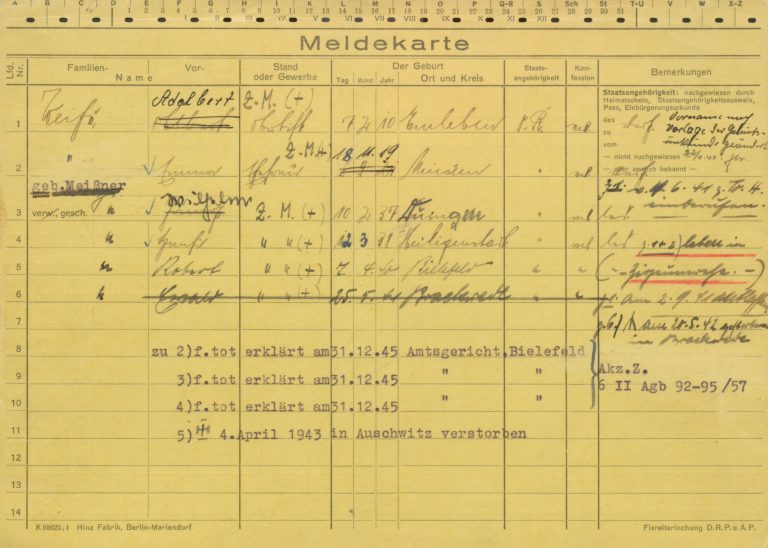 A B C D E F G H J K L M N O P-Q R S Sch St T-U V W X-Z
1 2 3 4 5 6 7 8 9 10 11 12 13 14 15 16 17 18 19 20 21 22 23 24 25 26 27 28 29 30 31
I II III IV V VI VII VIII IX X XI XII
Meldekarte
Lfd. Nr.
Familien- Vor-
Name
Stand oder Gewerbe
Der Geburt
Tag Monat Jahr Ort und Kreis
Staats-angehörigkeit
Kon-fession
Bemerkungen
Staatsangehörigkeit: nachgewiesen durch
Heimatschein, Staatsangehörigkeitsausweis,
Pass, Einbürgerungsurkunde
des
zu
vom
— nicht nachgewiesen —
aber amtlich bekannt —
Vorname
Vorlage der Geburts-
urkunde geändert
1 Adelbert Z.-M. (+) 7 2 10 Emleben
2 " Emma Ehefrau Z.M(+) 18 11 19 Minden
geb. Meißner
verw., gesch.
einberufen.
3 " Wilhelm Z.-M. (+) 10 2 37 Duingen
4 " " " (+) 12 3 38 Heiligenstadt
z. 1+2) leben in
5 " Robert " " (+) 7. 4. 40 Bielefeld " "
(-- Zigeunerehe. --)
6 " Ewald " " (+) 25. 5. 41 Brackwede " "
am 2. 9. 41
7
z. 6) am 28.5.42 gestorben
in Brackwede
8 zu 2) f.tot erklärt am 31.12.45 Amtsgericht, Bielefeld
9 3) f.tot erklärt am 31.12.45 " "
Akz.Z.
6 II Agb 92-95 /57
10 4) f.tot erklärt am 31.12.45 " "
11 5) 4. April 1943 in Auschwitz verstorben
12
13
14
K 99625,1 Hinz Fabrik, Berlin-Mariendorf
Fixreiterlochung D.R.P.u.A.P.